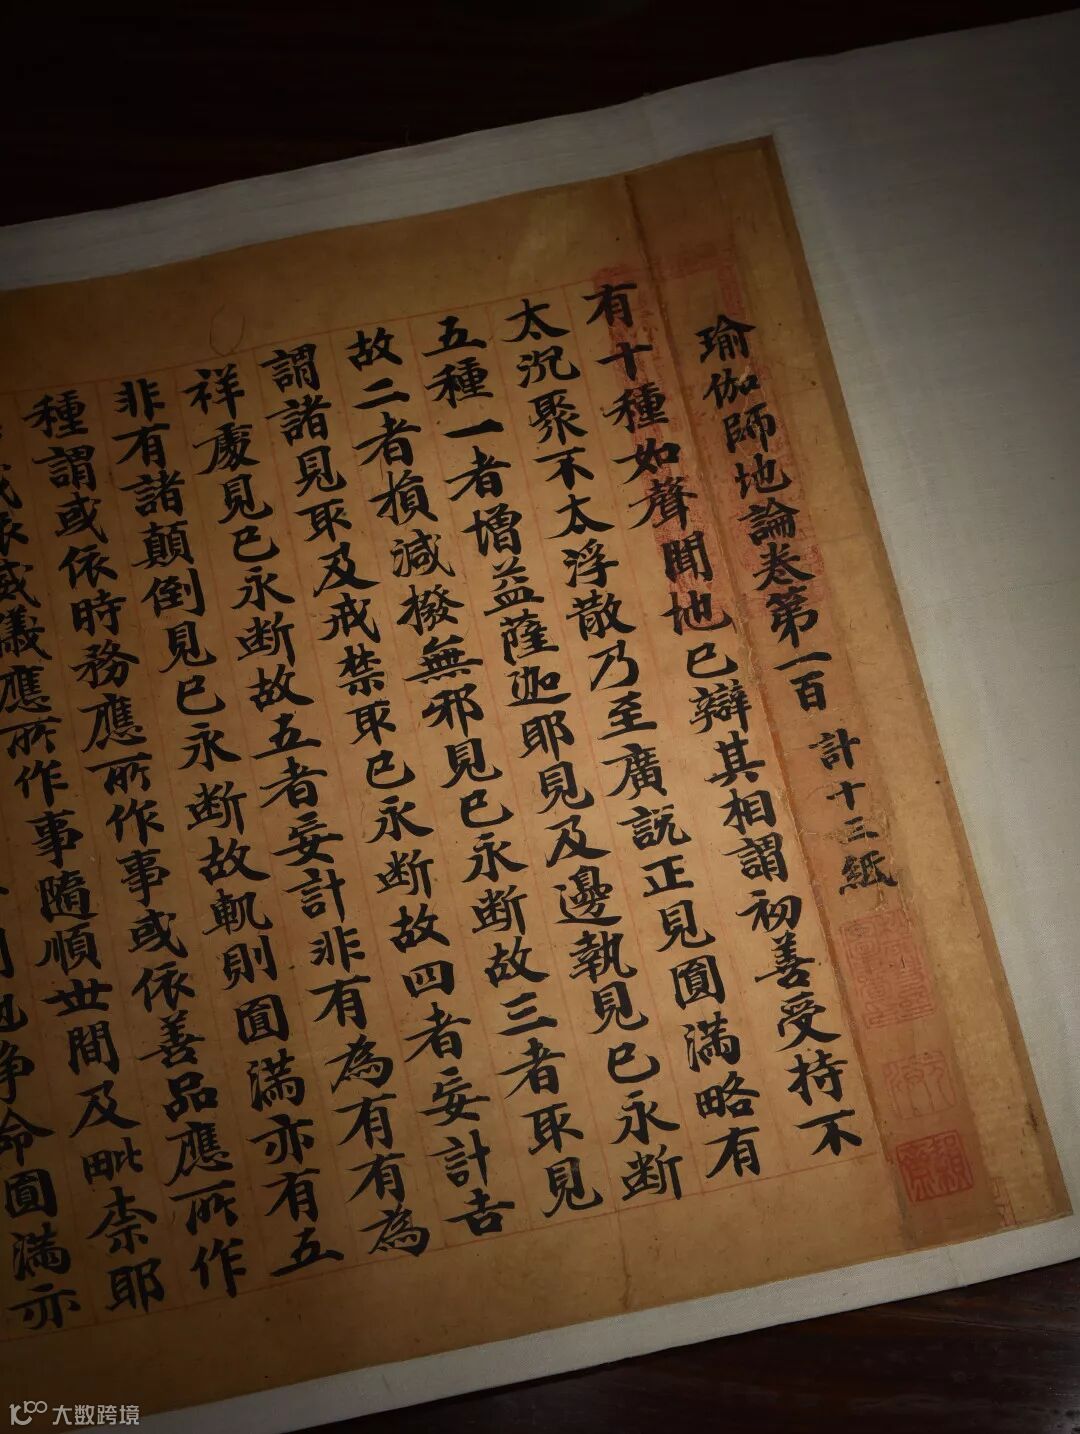 瑜伽師地論卷第一百 計十三紙
有十種如聲聞地已辯其相謂初善受持不
太沉聚不太浮散乃至廣說正見圓滿略有
五種一者增益薩迦耶見及邊執見已永断
故二者損減撥無邪見已永断故三者取見
謂諸見取及戒禁取已永断故四者妄計吉
祥處見已永断故五者妄計非有為有有為
非有諸顛倒見已永断故軌則圓滿亦有五
種謂或依時務應所作事或依善品應所作
或依威儀應所作事隨順世間及毗柰耶
淨命圓滿亦
大数跨境